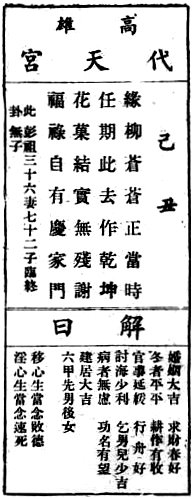 高雄
代天宮
己丑
綠柳蒼蒼正當時
任期此去作乾坤
花菓結實無殘謝
福祿自有慶家門
此彭祖三十六妻七十二子臨終
卦無子
解曰
婚姻大吉 求財春好
冬者平平 耕作有收
官事延綏 行舟好
討海少利 乞男兒少吉
病者無慮 功名有望
建居大吉
六甲先男後女
移心生當念敗德
淫心生當念速死